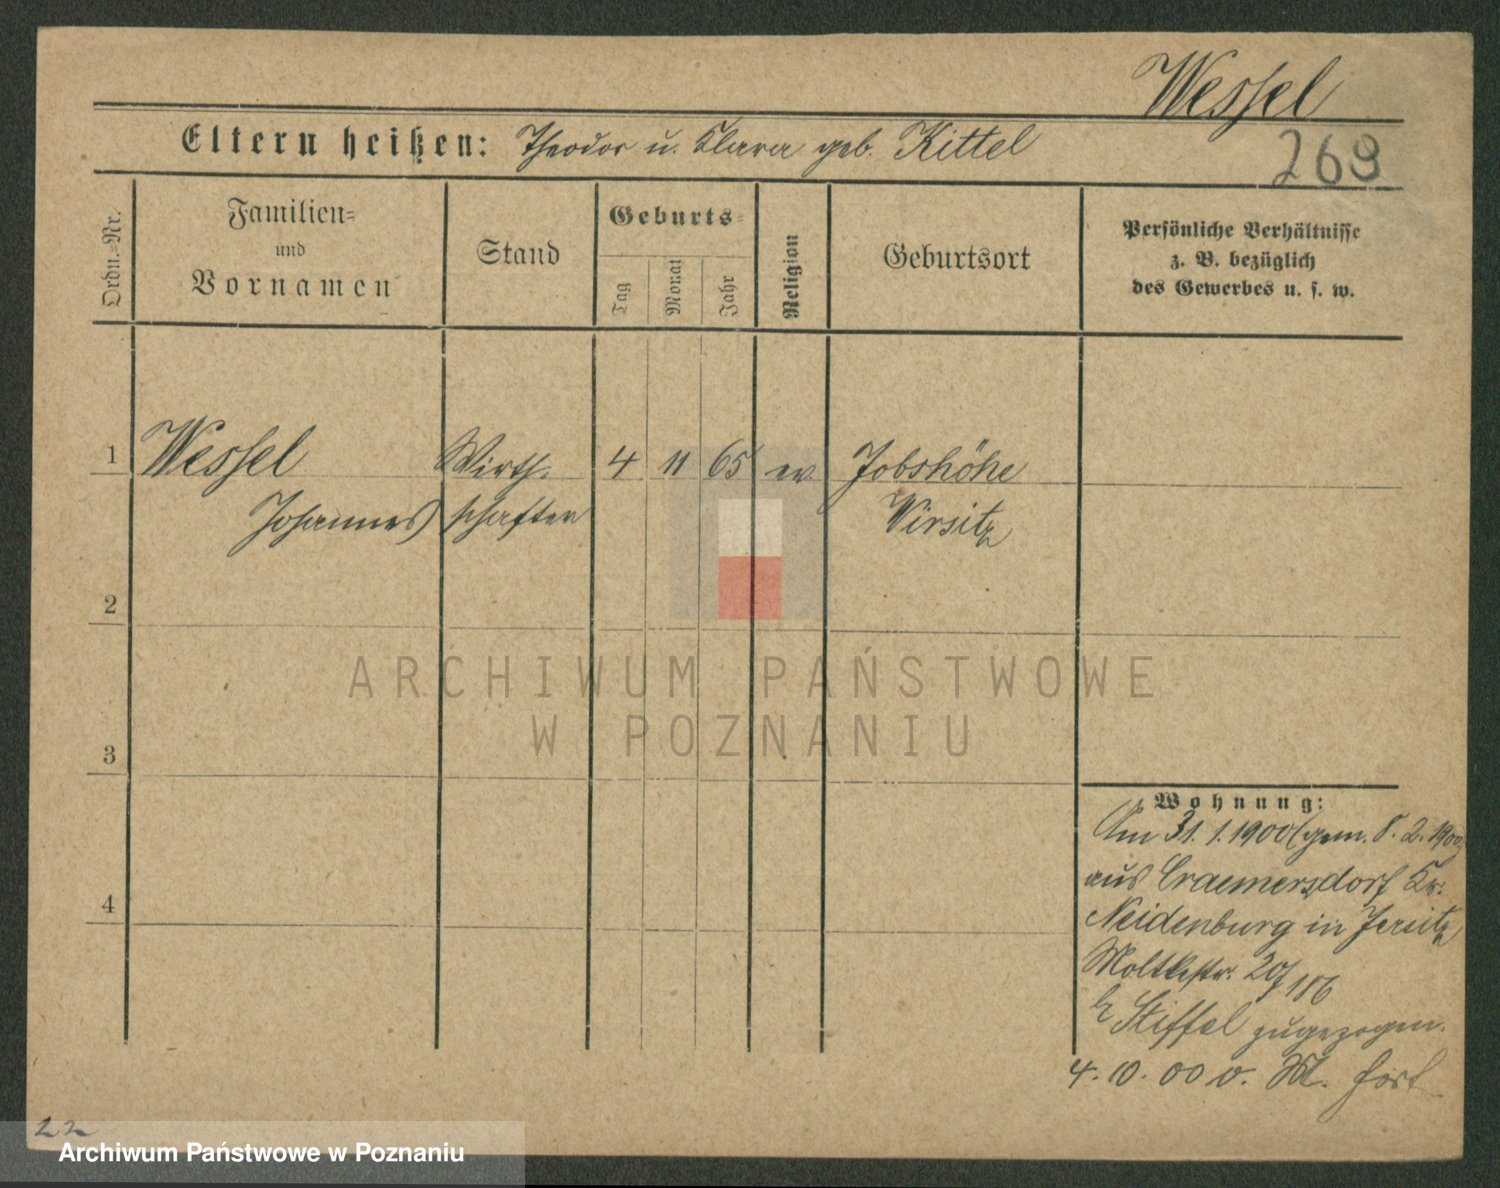 Wessel
Eltern heißen: Theodor u. Clara geb. Kittel
268
Ordn.-Nr.
Familien-
und
Vornamen
Stand
Geburts-
Tag
Monat
Jahr
Religion
Geburtsort
Persönliche Verhältnisse
z. B. bezüglich
des Gewerbes u. s. w.
1 Wessel Wirth- 4 11 65 ev. Jobshöhe
Johannes schafter Wirsitz
2
ARCHIWUM PAŃSTWOWE
W POZNANIU
3
Wohnung:
Am 31. 1. 1900 (gem. 8. 2. 1900)
aus Craemersdorf Kr.
Neidenburg in Jersitz
4
Moltkestr. 20/186
Stiffel zugezogen.
4. 10. 00 o. M. fort
22
Archiwum Państwowe w Poznaniu